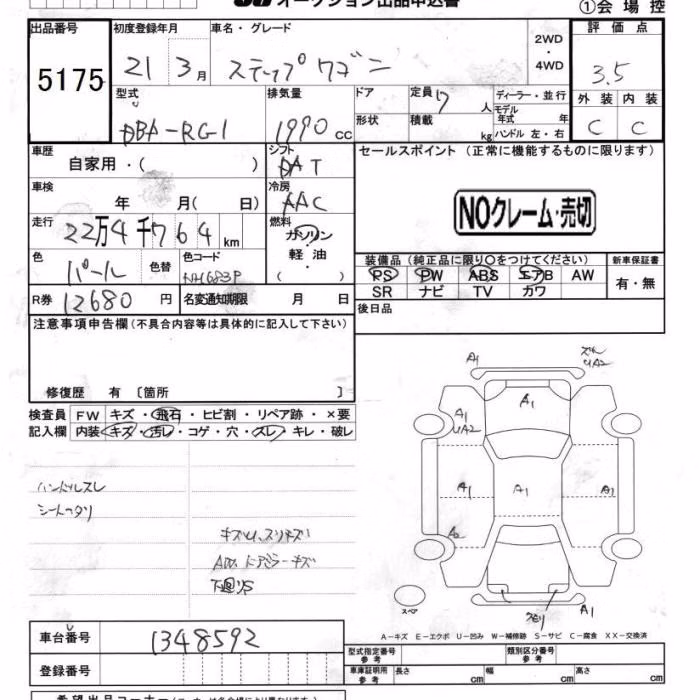 オークション出品申込書
①会場控
出品番号 初度登録年月 車名・グレード 2WD ・4WD 評価点
5175 21 3月 ステップワゴン 3.5
型式 排気量 ドア 定員 人 ディーラー・並行 外装 内装
DBA-RG1 1990cc 形状 積載 kg モデル年式 年 C C
ハンドル 左・右
車歴 シフト セールスポイント (正常に機能するものに限ります)
自家用・( ) AT
車検 冷房 NOクレーム・売切
年 月( 日) AAC
走行 燃料
22万4千764km ガソリン
軽油
( )
色 色替 色コード 装備品(純正品に限り○をつけてください) 新車保証書
パール NH683P PS PW ABS エアB AW 有・無
SR ナビ TV カワ
R券 12680円 名変通知期限 月 日 後日品
注意事項申告欄(不具合内容等は具体的に記入して下さい)
修復歴 有 〔箇所 〕
検査員 FW キズ・飛石・ヒビ割・リペア跡・×要
記入欄 内装 キズ・汚レ・コゲ・穴・スレ・キレ・破レ
ハンドルスレ
シートヘタリ
キズU、スリキズ
ドアミラーキズ
下廻りS
A1 UA2
A1
A1 UA2
A1 A1 A1
A2
スペア クモリ A1
A-キズ E-エクボ U-凹み W-補修跡 S-サビ C-腐食 XX-交換済
車台番号 1348592
型式指定番号 参考 類別区分番号 参考
登録番号 車庫証明用 参考 長さ cm 幅 cm 高さ cm
希望出品コーナー